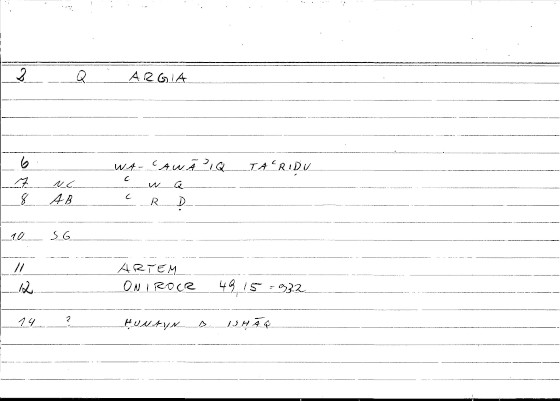 2 Q ARGIA
6 WA-ʿAWĀʾIQ TAʿRIḌU
7 NC ʿ W Q
8 AB ʿ R Ḍ
10 SG
11 ARTEM
12 ONIROCR 49,15 = 932
14 ? ḤUNAYN B ISḤĀQ